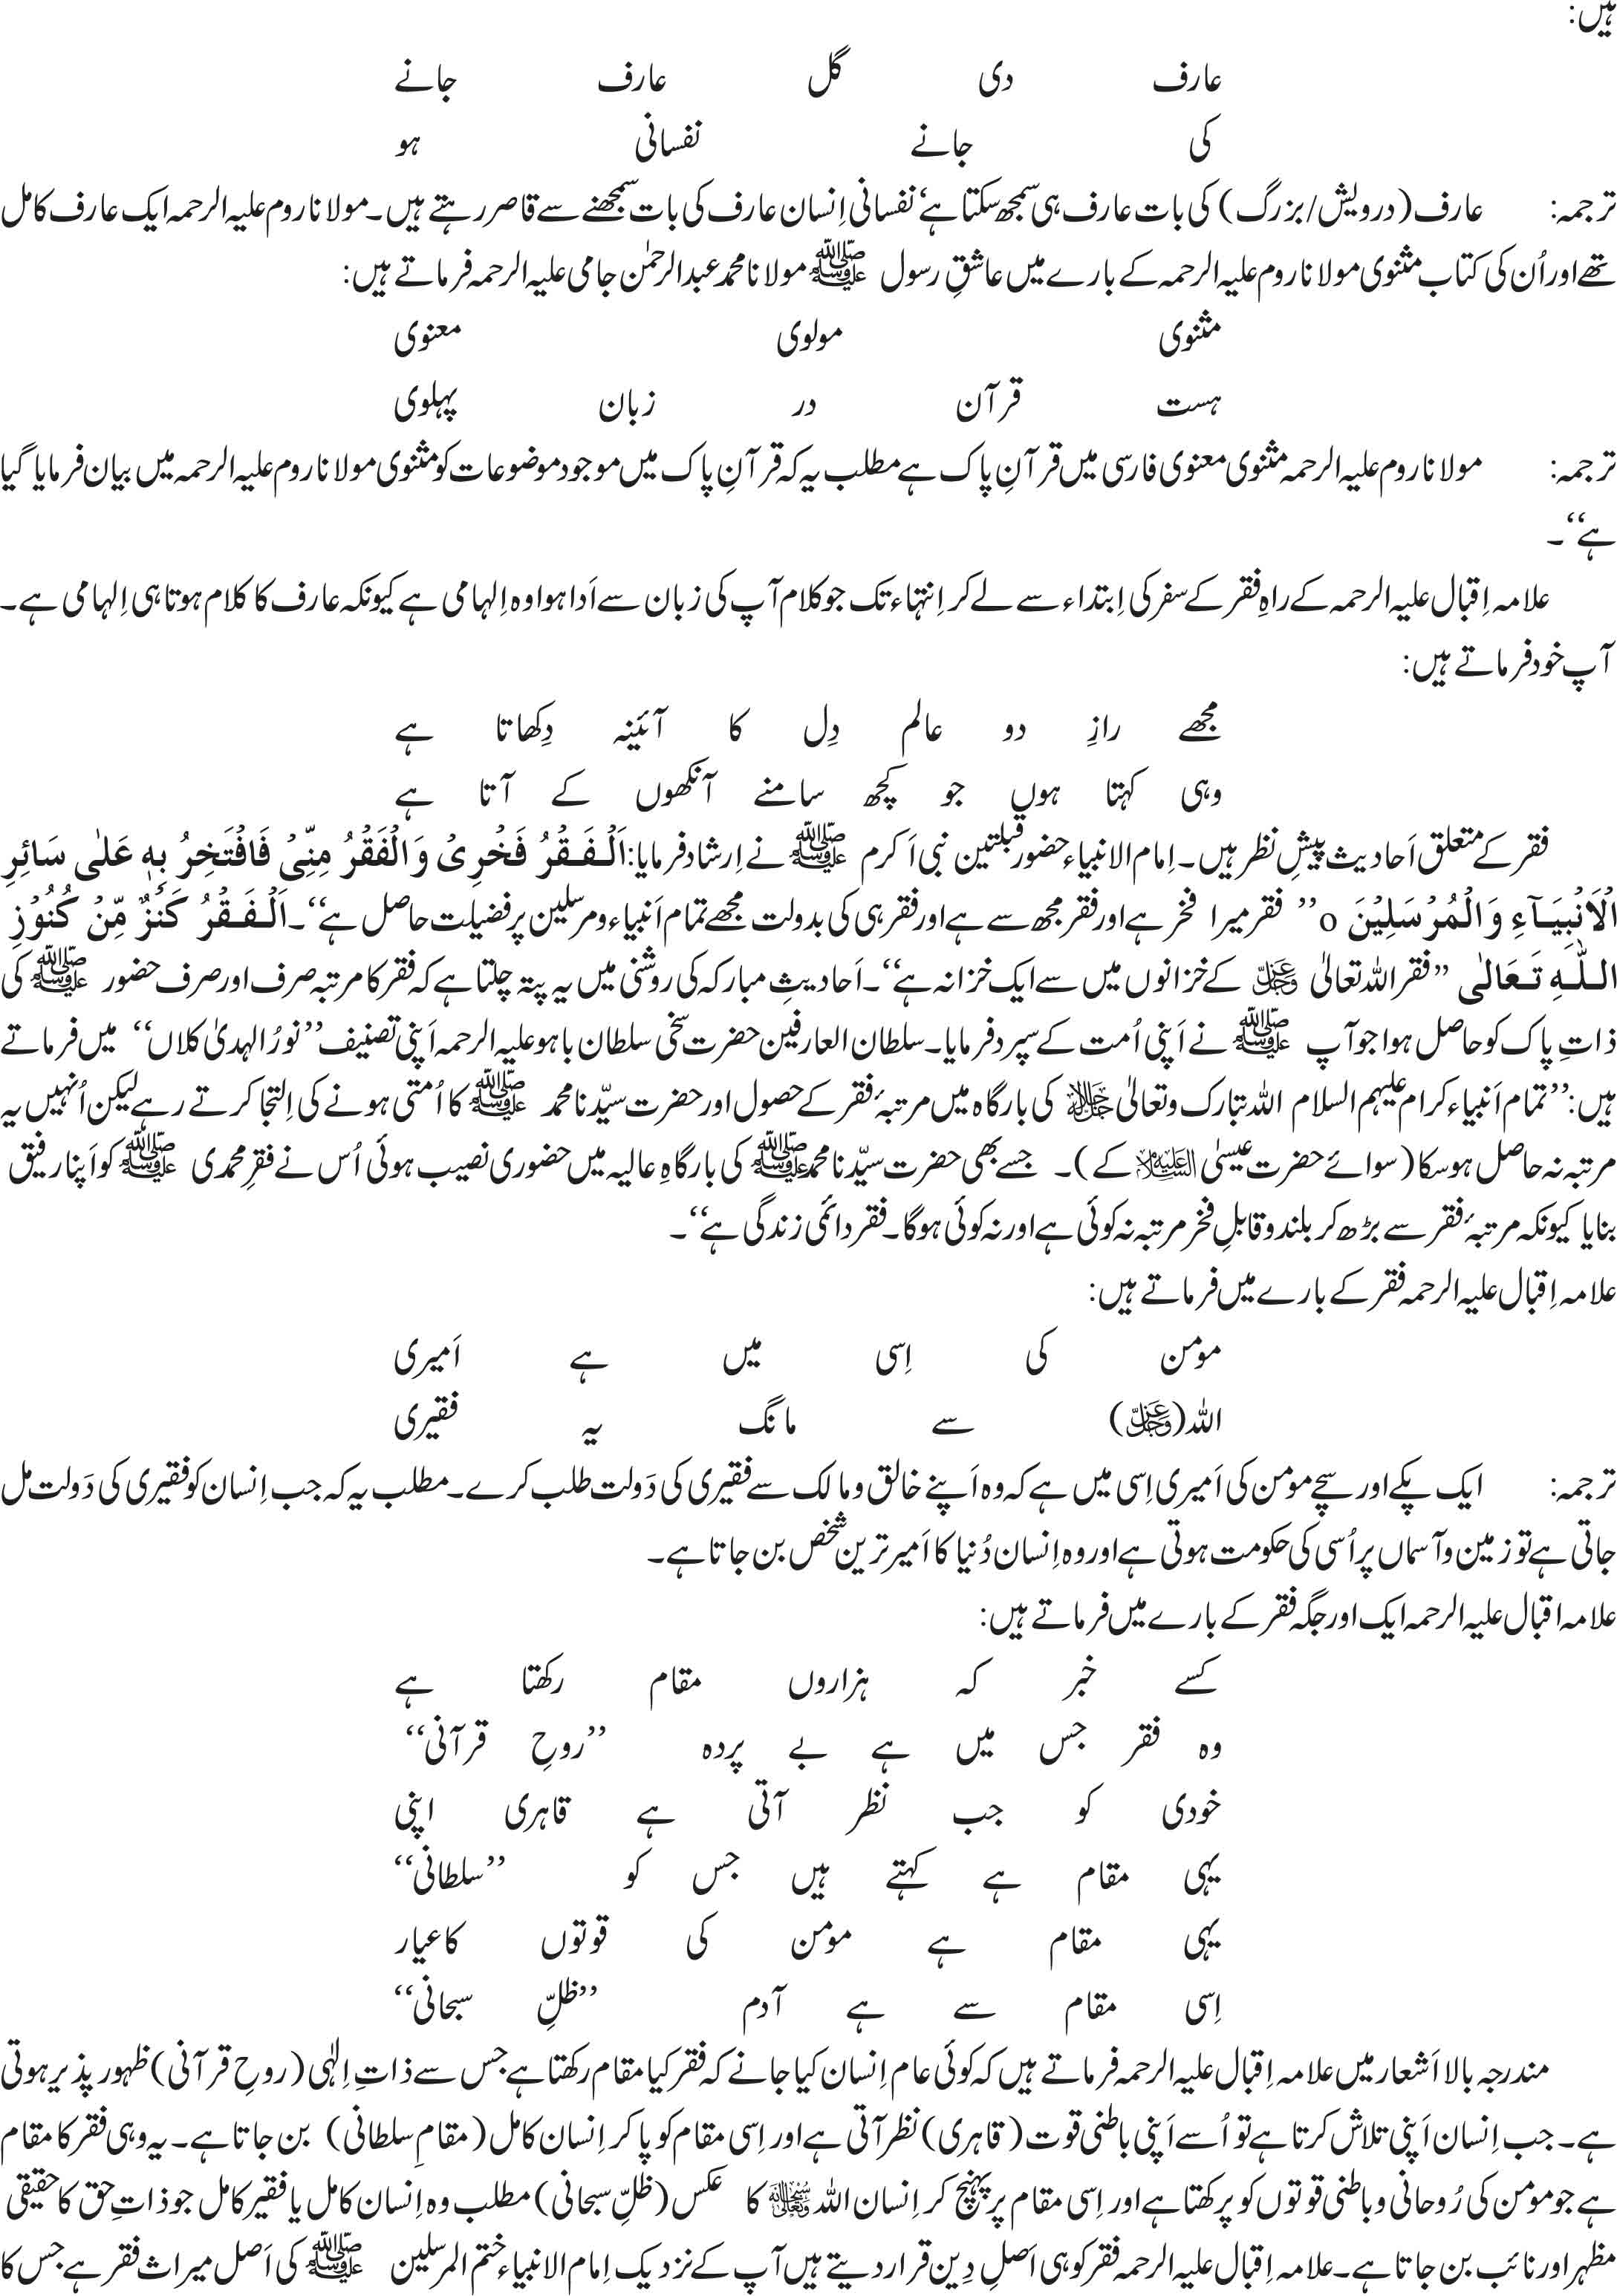 ہیں:
عارف دی گل عارف جانے
کی جانے نفسانی ہو
ترجمہ: عارف (درویش/بزرگ) کی بات عارف ہی سمجھ سکتا ہے‘ نفسانی اِنسان عارف کی بات سمجھنے سے قاصر رہتے ہیں۔ مولانا روم علیہ الرحمہ ایک عارف کامل
تھے اور اُن کی کتاب مثنوی مولانا روم علیہ الرحمہ کے بارے میں عاشقِ رسول ﷺ مولانا محمد عبدالرحمٰن جامی علیہ الرحمہ فرماتے ہیں:
مثنوی مولوی معنوی
ہست قرآن در زبان پہلوی
ترجمہ: مولانا روم علیہ الرحمہ مثنوی معنوی فارسی میں قرآنِ پاک ہے مطلب یہ کہ قرآنِ پاک میں موجود موضوعات کو مثنوی مولانا روم علیہ الرحمہ میں بیان فرمایا گیا
ہے‘‘۔
علامہ اِقبال علیہ الرحمہ کے راہِ فقر کے سفر کی اِبتداء سے لے کر اِنتہاء تک جو کلام آپ کی زبان سے اَدا ہوا وہ اِلہامی ہے کیونکہ عارف کا کلام ہوتا ہی اِلہامی ہے۔
آپ خود فرماتے ہیں:
مجھے رازِ دو عالم دِل کا آئینہ دِکھاتا ہے
وہی کہتا ہوں جو کچھ سامنے آنکھوں کے آتا ہے
فقر کے متعلق اَحادیث پیشِ نظر ہیں۔ اِمام الانبیاء حضور قبلتین نبی اَکرم ﷺ نے اِرشاد فرمایا: اَلْفَقْرُ فَخْرِیْ وَالْفَقْرُ مِنِّیْ فَافْتَخِرُ بِہٖ عَلٰی سَائِرِ
الْاَنْبِیَآءِ وَالْمُرْسَلِیْنَ o ’’ فقر میرا فخر ہے اور فقر مجھ سے ہے اور فقر ہی کی بدولت مجھے تمام اَنبیاء و مرسلین پر فضیلت حاصل ہے‘‘۔ اَلْفَقْرُ کَنْزٌ مِّنْ کُنُوْزِ
اللّٰہِ تَعَالٰی ’’فقر اللہ تعالیٰ عزوجل کے خزانوں میں سے ایک خزانہ ہے‘‘۔ اَحادیثِ مبارکہ کی روشنی میں یہ پتہ چلتا ہے کہ فقر کا مرتبہ صرف اور صرف حضور ﷺ کی
ذاتِ پاک کو حاصل ہوا جو آپ ﷺ نے اَپنی اُمت کے سپرد فرمایا۔ سلطان العارفین حضرت سخی سلطان باہو علیہ الرحمہ اَپنی تصنیف ’’نورُ الہدیٰ کلاں‘‘ میں فرماتے
ہیں: ’’تمام اَنبیاء کرام علیہم السلام اللہ تبارک وتعالیٰ جل جلالہ کی بارگاہ میں مرتبۂ فقر کے حصول اور حضرت سیّدنا محمد ﷺ کا اُمتی ہونے کی اِلتجا کرتے رہے لیکن اُنہیں یہ
مرتبہ نہ حاصل ہوسکا (سوائے حضرت عیسیٰ علیہ السلام کے)۔ جسے بھی حضرت سیّدنا محمد ﷺ کی بارگاہِ عالیہ میں حضوری نصیب ہوئی اُس نے فقرِ محمدی ﷺ کو اَپنا رفیق
بنایا کیونکہ مرتبۂ فقر سے بڑھ کر بلند و قابلِ فخر مرتبہ نہ کوئی ہے اور نہ کوئی ہوگا۔ فقر دائمی زندگی ہے‘‘۔
علامہ اِقبال علیہ الرحمہ فقر کے بارے میں فرماتے ہیں:
مومن کی اِسی میں ہے اَمیری
اللہ (عزوجل) سے مانگ یہ فقیری
ترجمہ: ایک پکے اور سچے مومن کی اَمیری اِسی میں ہے کہ وہ اَپنے خالق و مالک سے فقیری کی دَولت طلب کرے۔ مطلب یہ کہ جب اِنسان کو فقیری کی دَولت مل
جاتی ہے تو زمین و آسماں پر اُسی کی حکومت ہوتی ہے اور وہ اِنسان دُنیا کا اَمیر ترین شخص بن جاتا ہے۔
علامہ اقبال علیہ الرحمہ ایک اور جگہ فقر کے بارے میں فرماتے ہیں:
کسے خبر کہ ہزاروں مقام رکھتا ہے
وہ فقر جس میں ہے بے پردہ ’’روحِ قرآنی‘‘
خودی کو جب نظر آتی ہے قاہری اپنی
یہی مقام ہے کہتے ہیں جس کو ’’سلطانی‘‘
یہی مقام ہے مومن کی قوتوں کا عیار
اِسی مقام سے ہے آدم ’’ظلِّ سبحانی‘‘
مندرجہ بالا اَشعار میں علامہ اِقبال علیہ الرحمہ فرماتے ہیں کہ کوئی عام اِنسان کیا جانے کہ فقر کیا مقام رکھتا ہے جس سے ذاتِ اِلٰہی (روحِ قرآنی) ظہور پذیر ہوتی
ہے۔ جب اِنسان اَپنی تلاش کرتا ہے تو اُسے اَپنی باطنی قوت (قاہری) نظر آتی ہے اور اِسی مقام کو پا کر اِنسان کامل (مقامِ سلطانی) بن جاتا ہے۔ یہ وہی فقر کا مقام
ہے جو مومن کی رُوحانی و باطنی قوتوں کو پرکھتا ہے اور اِسی مقام پر پہنچ کر اِنسان اللہ سبحانہ وتعالیٰ کا عکس (ظلِّ سبحانی) مطلب وہ اِنسان کامل یا فقیر کامل جو ذاتِ حق کا حقیقی
مظہر اور نائب بن جاتا ہے۔ علامہ اِقبال علیہ الرحمہ فقر کو ہی اَصلِ دِین قرار دیتے ہیں آپ کے نزدیک اِمام الانبیاء ختم المرسلین ﷺ کی اَصل میراث فقر ہے جس کا